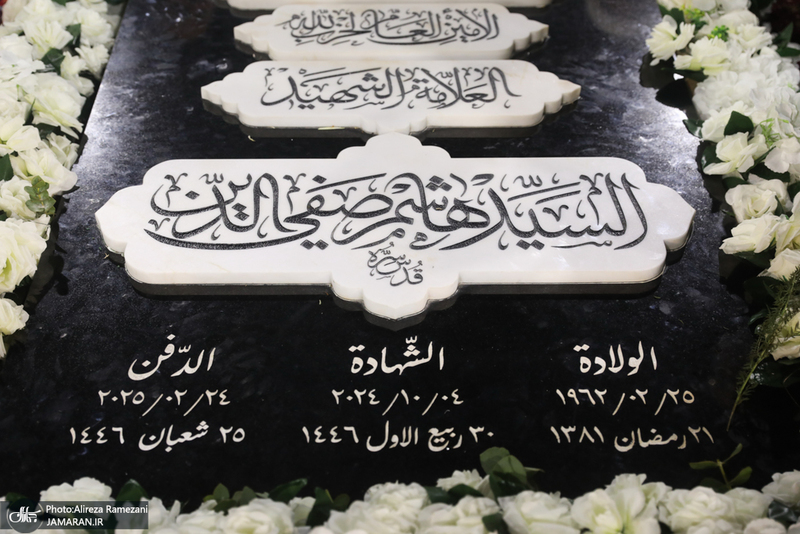 الأمين العام لحزب الله
العلامة الشهيد
السيّد هاشم صفي الدّين
قدّس سرّه
الولادة
١٩٦٢/٠٢/٢٥
٢١ رمضان ١٣٨١
الشّهادة
٢٠٢٤/١٠/٠٤
٣٠ ربيع الاول ١٤٤٦
الدّفن
٢٠٢٥/٠٢/٢٤
٢٥ شعبان ١٤٤٦
Photo:Alireza Ramezani
JAMARAN.IR